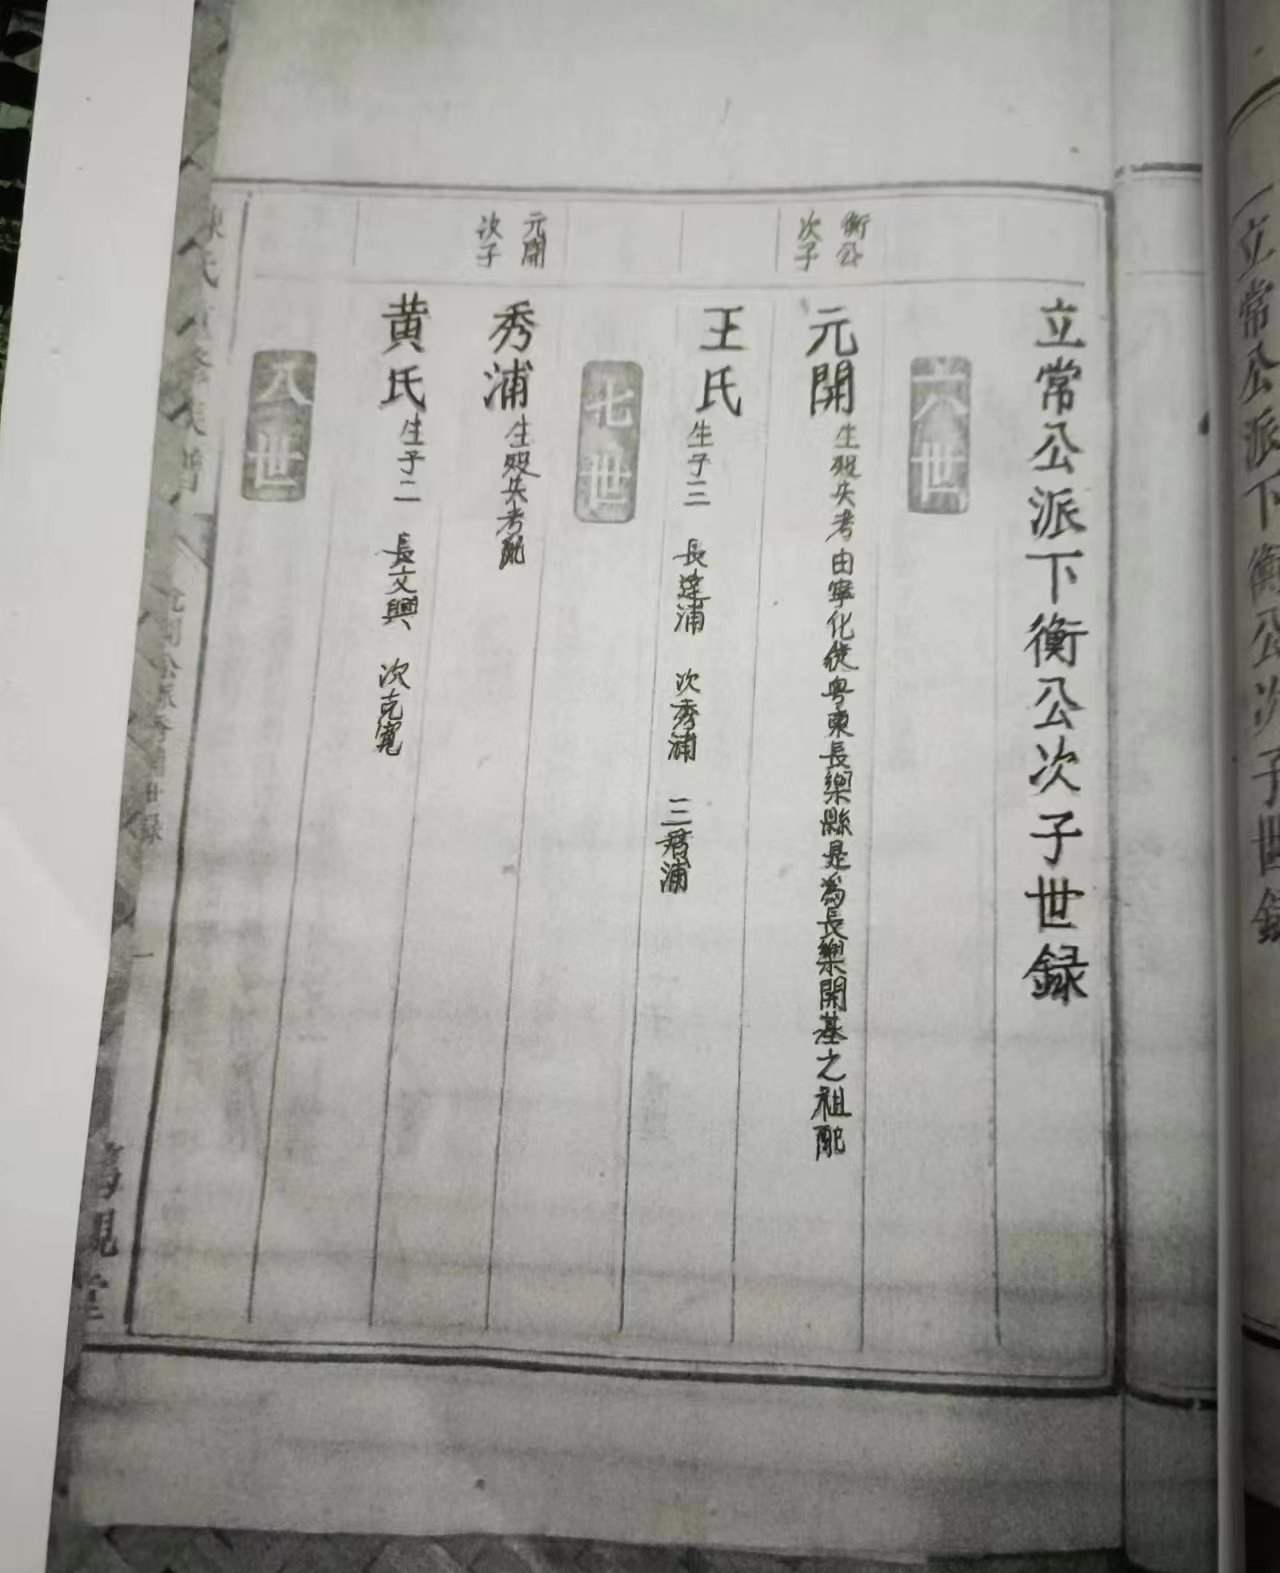 立常公派下衡公次子世録
六世
衡公
次子
元開 生殁失考由寧化徙粤東長樂縣是為長樂開基之祖配
王氏 生子三 長達浦 次秀浦 三君浦
七世
元開
次子
秀浦 生殁失考配
黄氏 生子二 長文興 次克寬
八世
立常公派下衡公次子世録